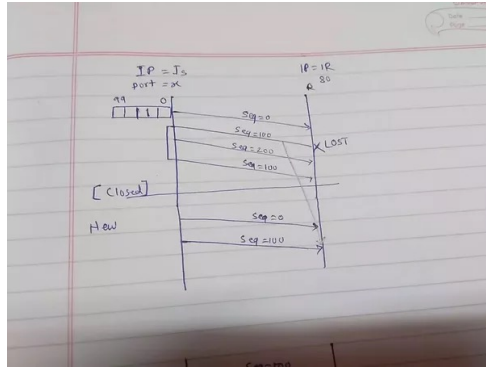 IP = Is
port = x
IP = IR
80
R
99 0
Seq=0
Seq=100
LOST
Seq=200
Seq=100
[Closed]
New
Seq=0
Seq=100